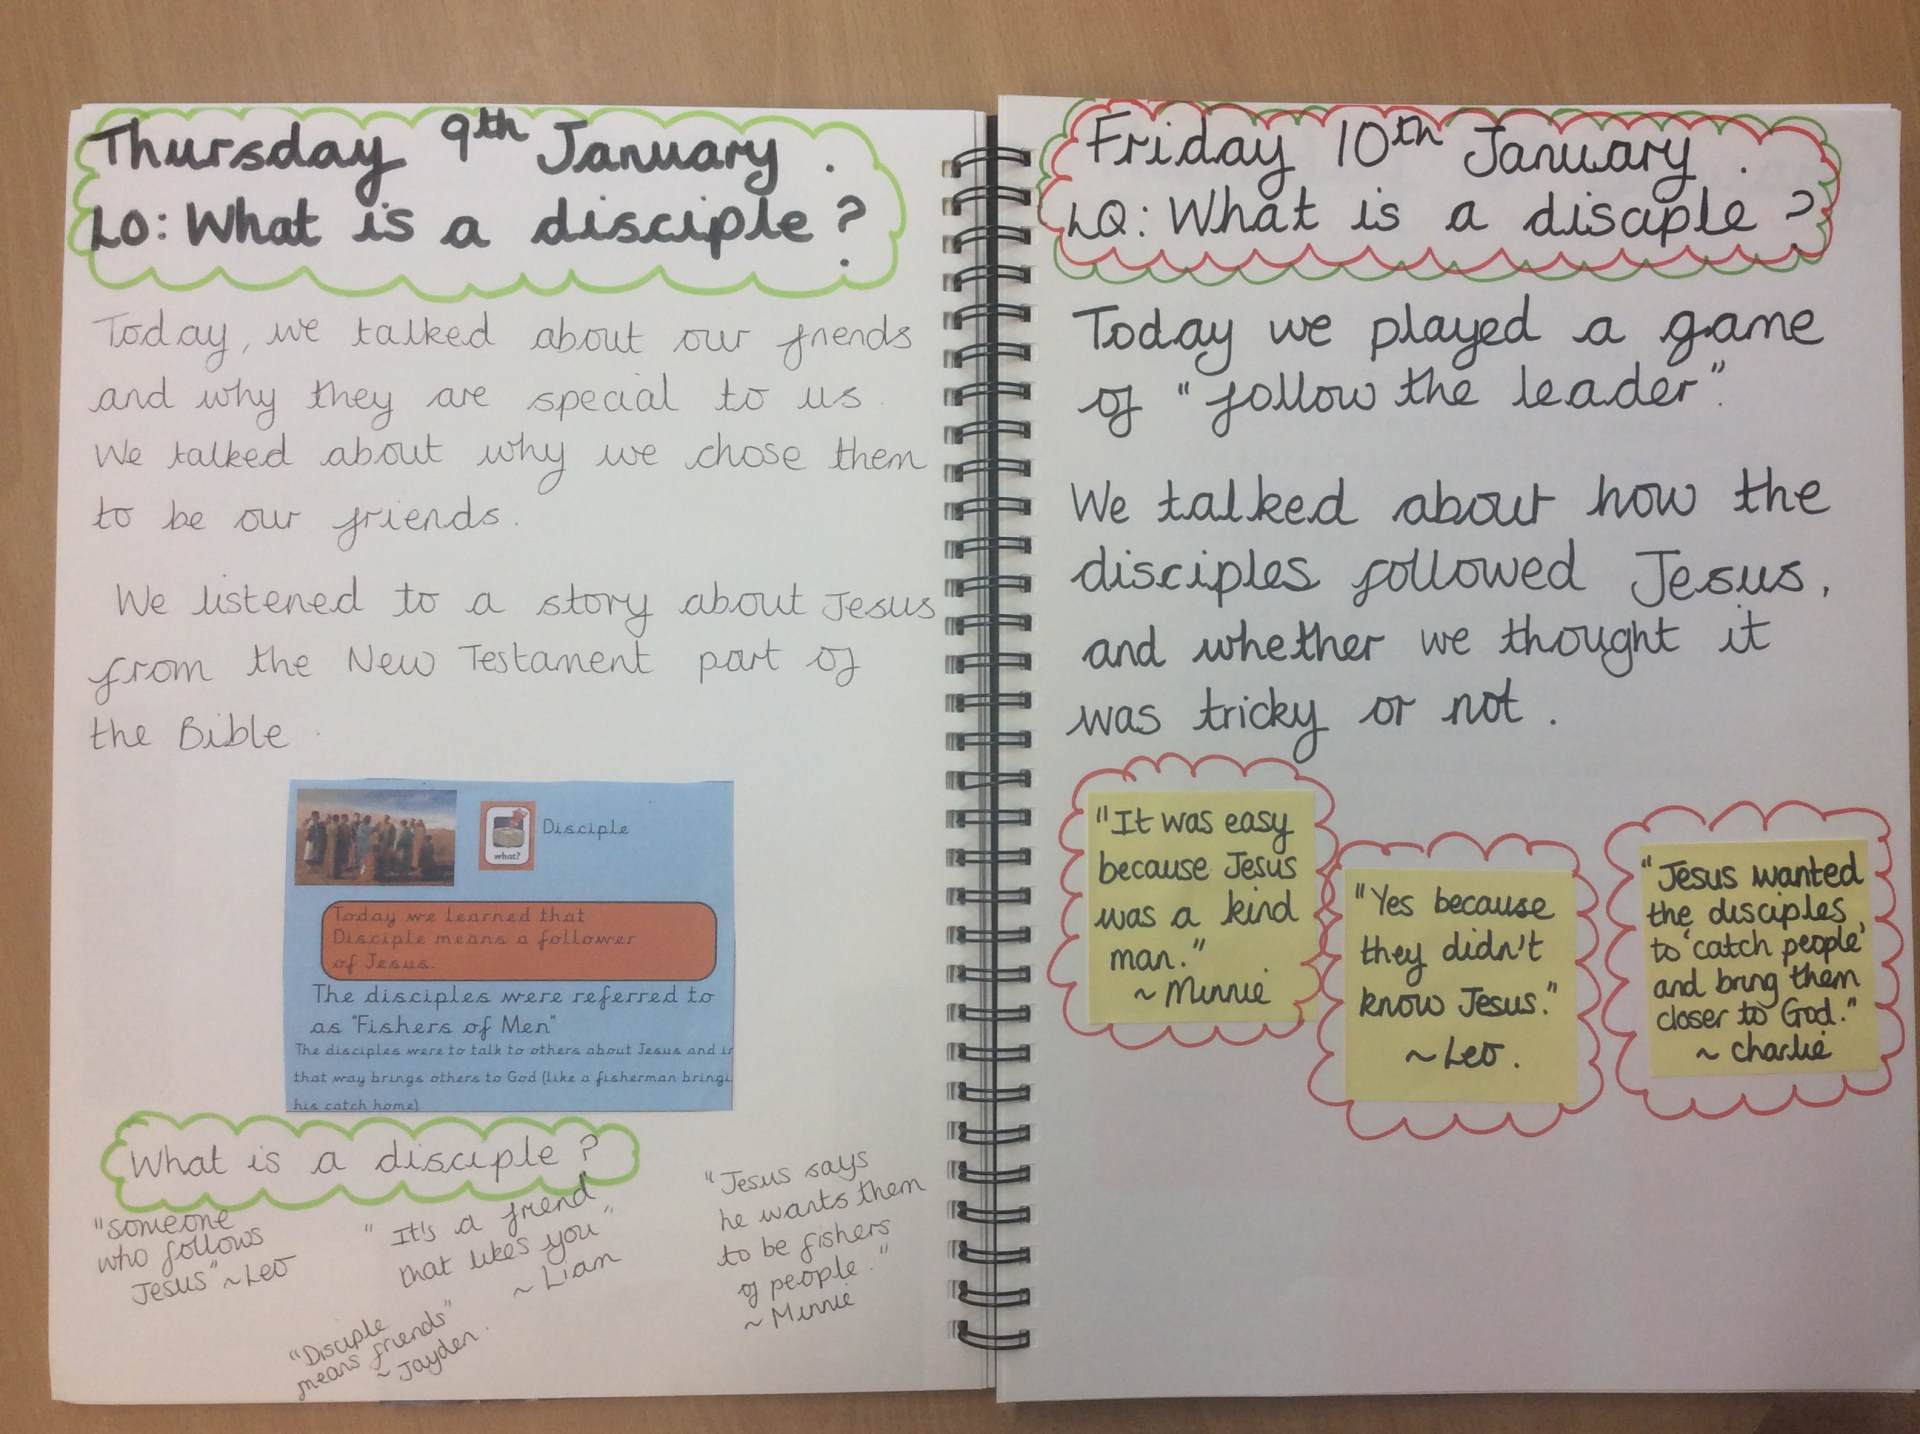 Thursday 9th January.
LO: What is a disciple?
Today, we talked about our friends
and why they are special to us.
We talked about why we chose them
to be our friends.
We listened to a story about Jesus
from the New Testament part of
the Bible.
what?
Disciple
Today we learned that
Disciple means a follower
of Jesus.
The disciples were referred to
as "Fishers of Men"
The disciples were to talk to others about Jesus and
that way brings others to God (like a fisherman
his catch home)
What is a disciple?
"someone
who follows
Jesus" ~Leo
"It's a friend
that likes you"
~ Liam
"Disciple
means friends"
~ Jayden.
"Jesus says
he wants them
to be fishers
of people."
~ Minnie
Friday 10th January.
LQ: What is a disciple?
Today we played a game
of "follow the leader".
We talked about how the
disciples followed Jesus,
and whether we thought it
was tricky or not.
"It was easy
because Jesus
was a kind
man."
~ Minnie
"Yes because
they didn't
know Jesus."
~ Leo.
"Jesus wanted
the disciples
to 'catch people'
and bring them
closer to God."
~ Charlie